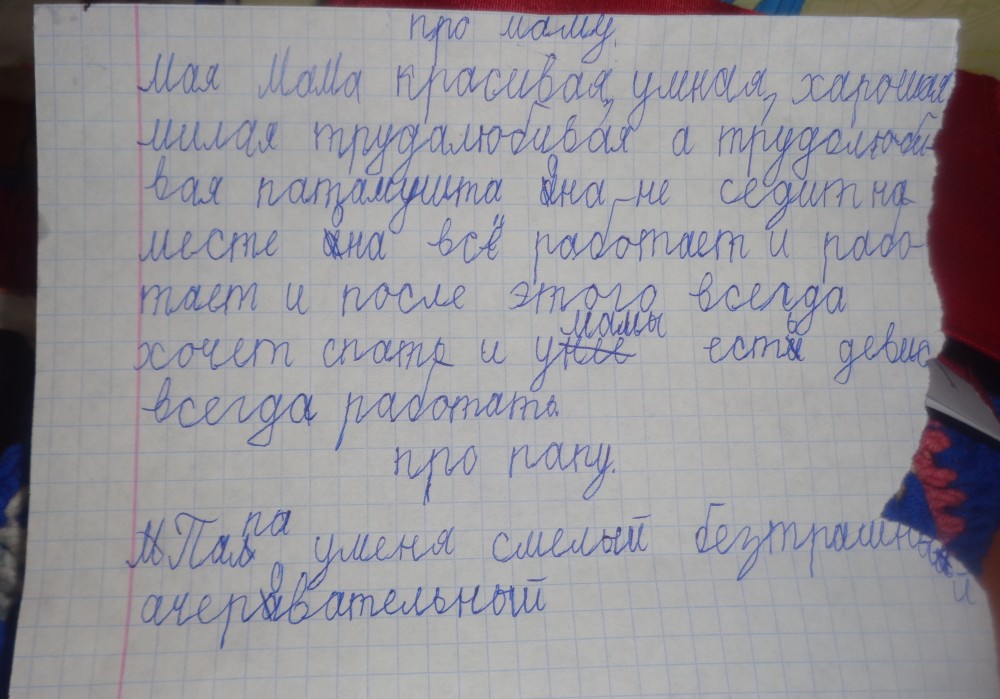 про маму.
Мая Мама красивая, умная, харошая
милая трудалюбивая а трудолюби-
вая патамушта она не седит на
месте она всё работает и рабо-
тает и после этого всегда
хочет спать и у мамы есть девис
всегда работать.
про папу.
Папа уменя смелый безтрашный
ачеровательный